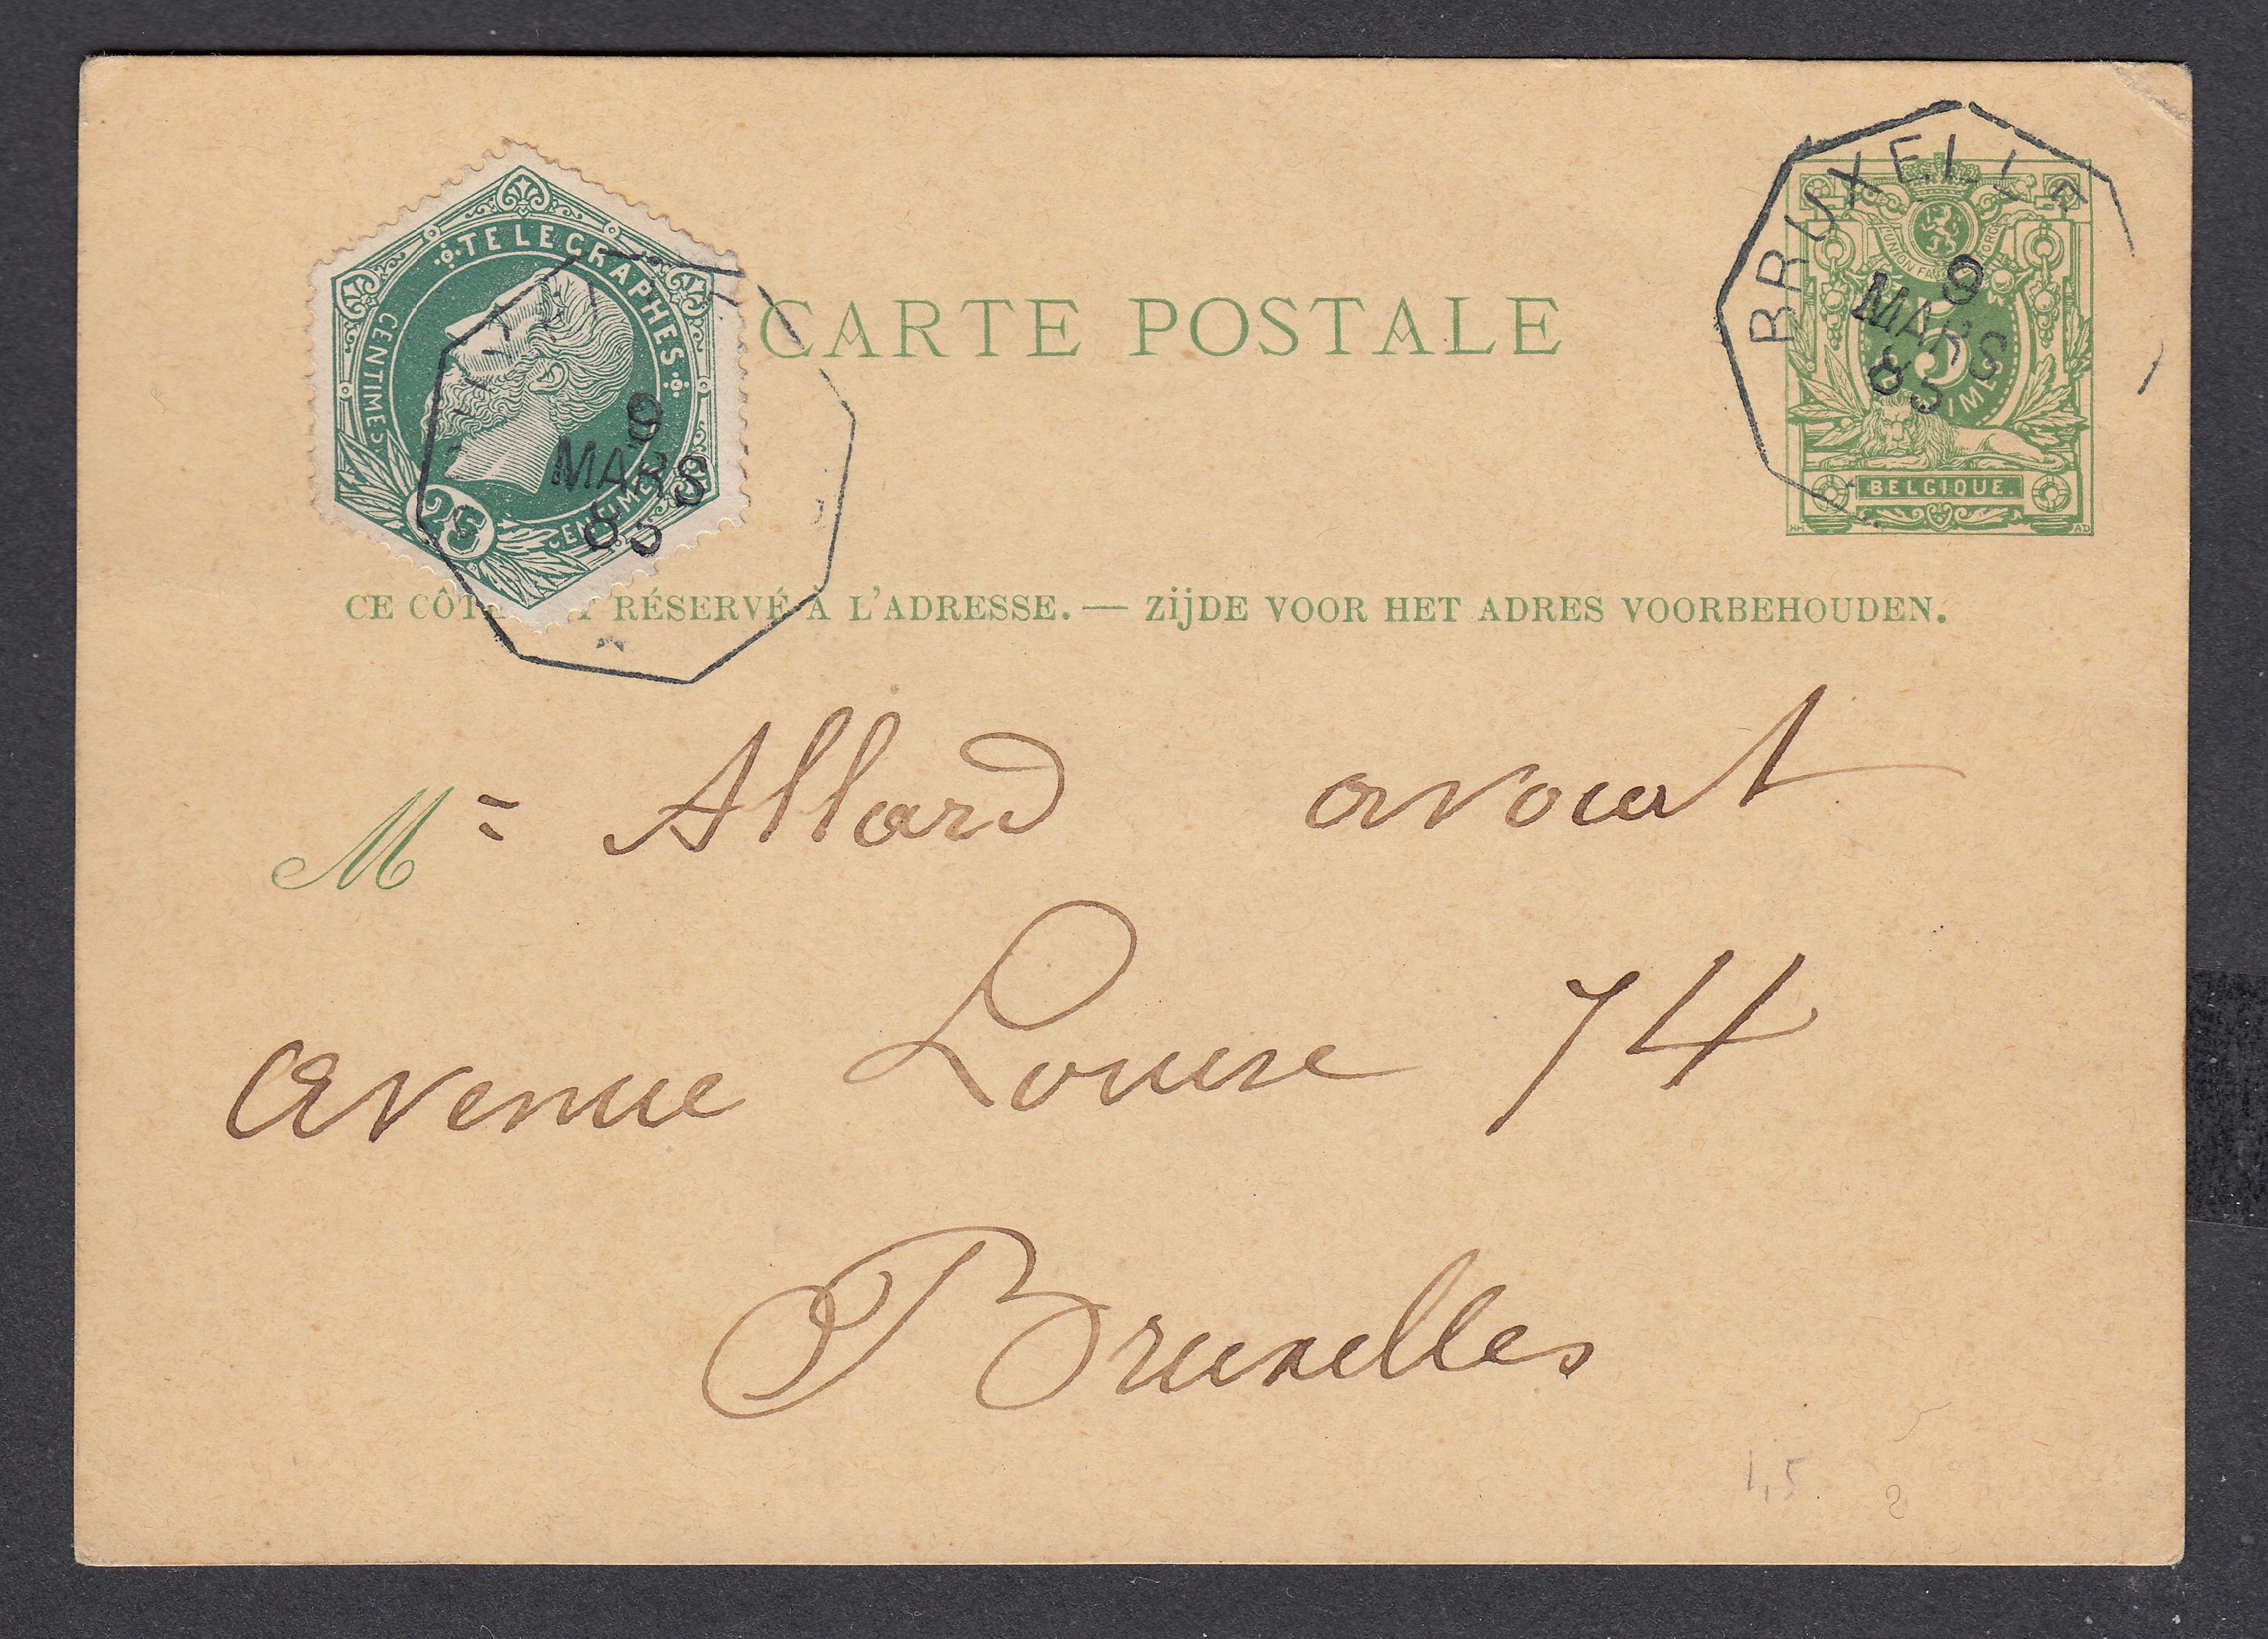 TELEGRAPHES
CENTIMES
25
CENTIMES
9
MARS
85
CARTE POSTALE
BRUXELLE
9
MARS
85
UNION
5
BELGIQUE.
NH
AD
CE CÔT RÉSERVÉ À L'ADRESSE. — ZIJDE VOOR HET ADRES VOORBEHOUDEN.
M= Allard avocat
avenue Louise 74
Bruxelles
1,5
2